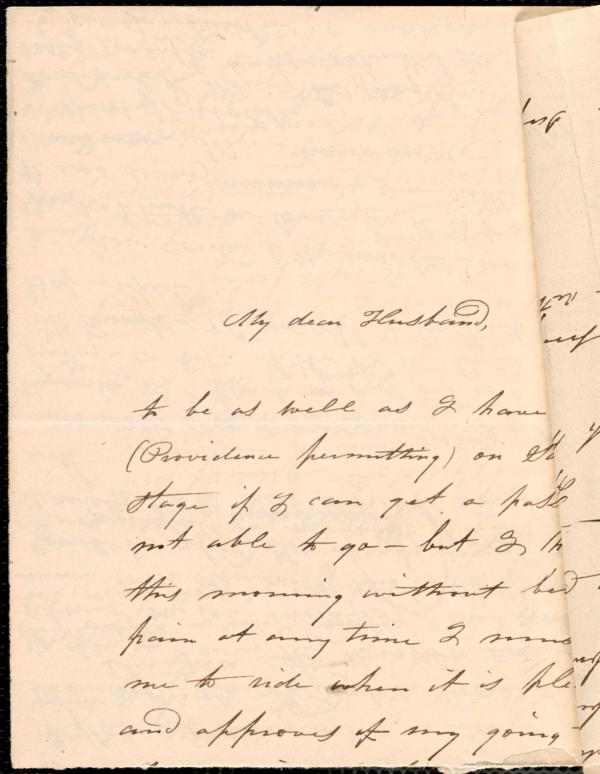 My dear Husband,
to be as well as I have
(Providence permitting) on
stage if I can get a pass
not able to go – but I
this morning without
pain at any time I
me to ride when it is
and approves of my going